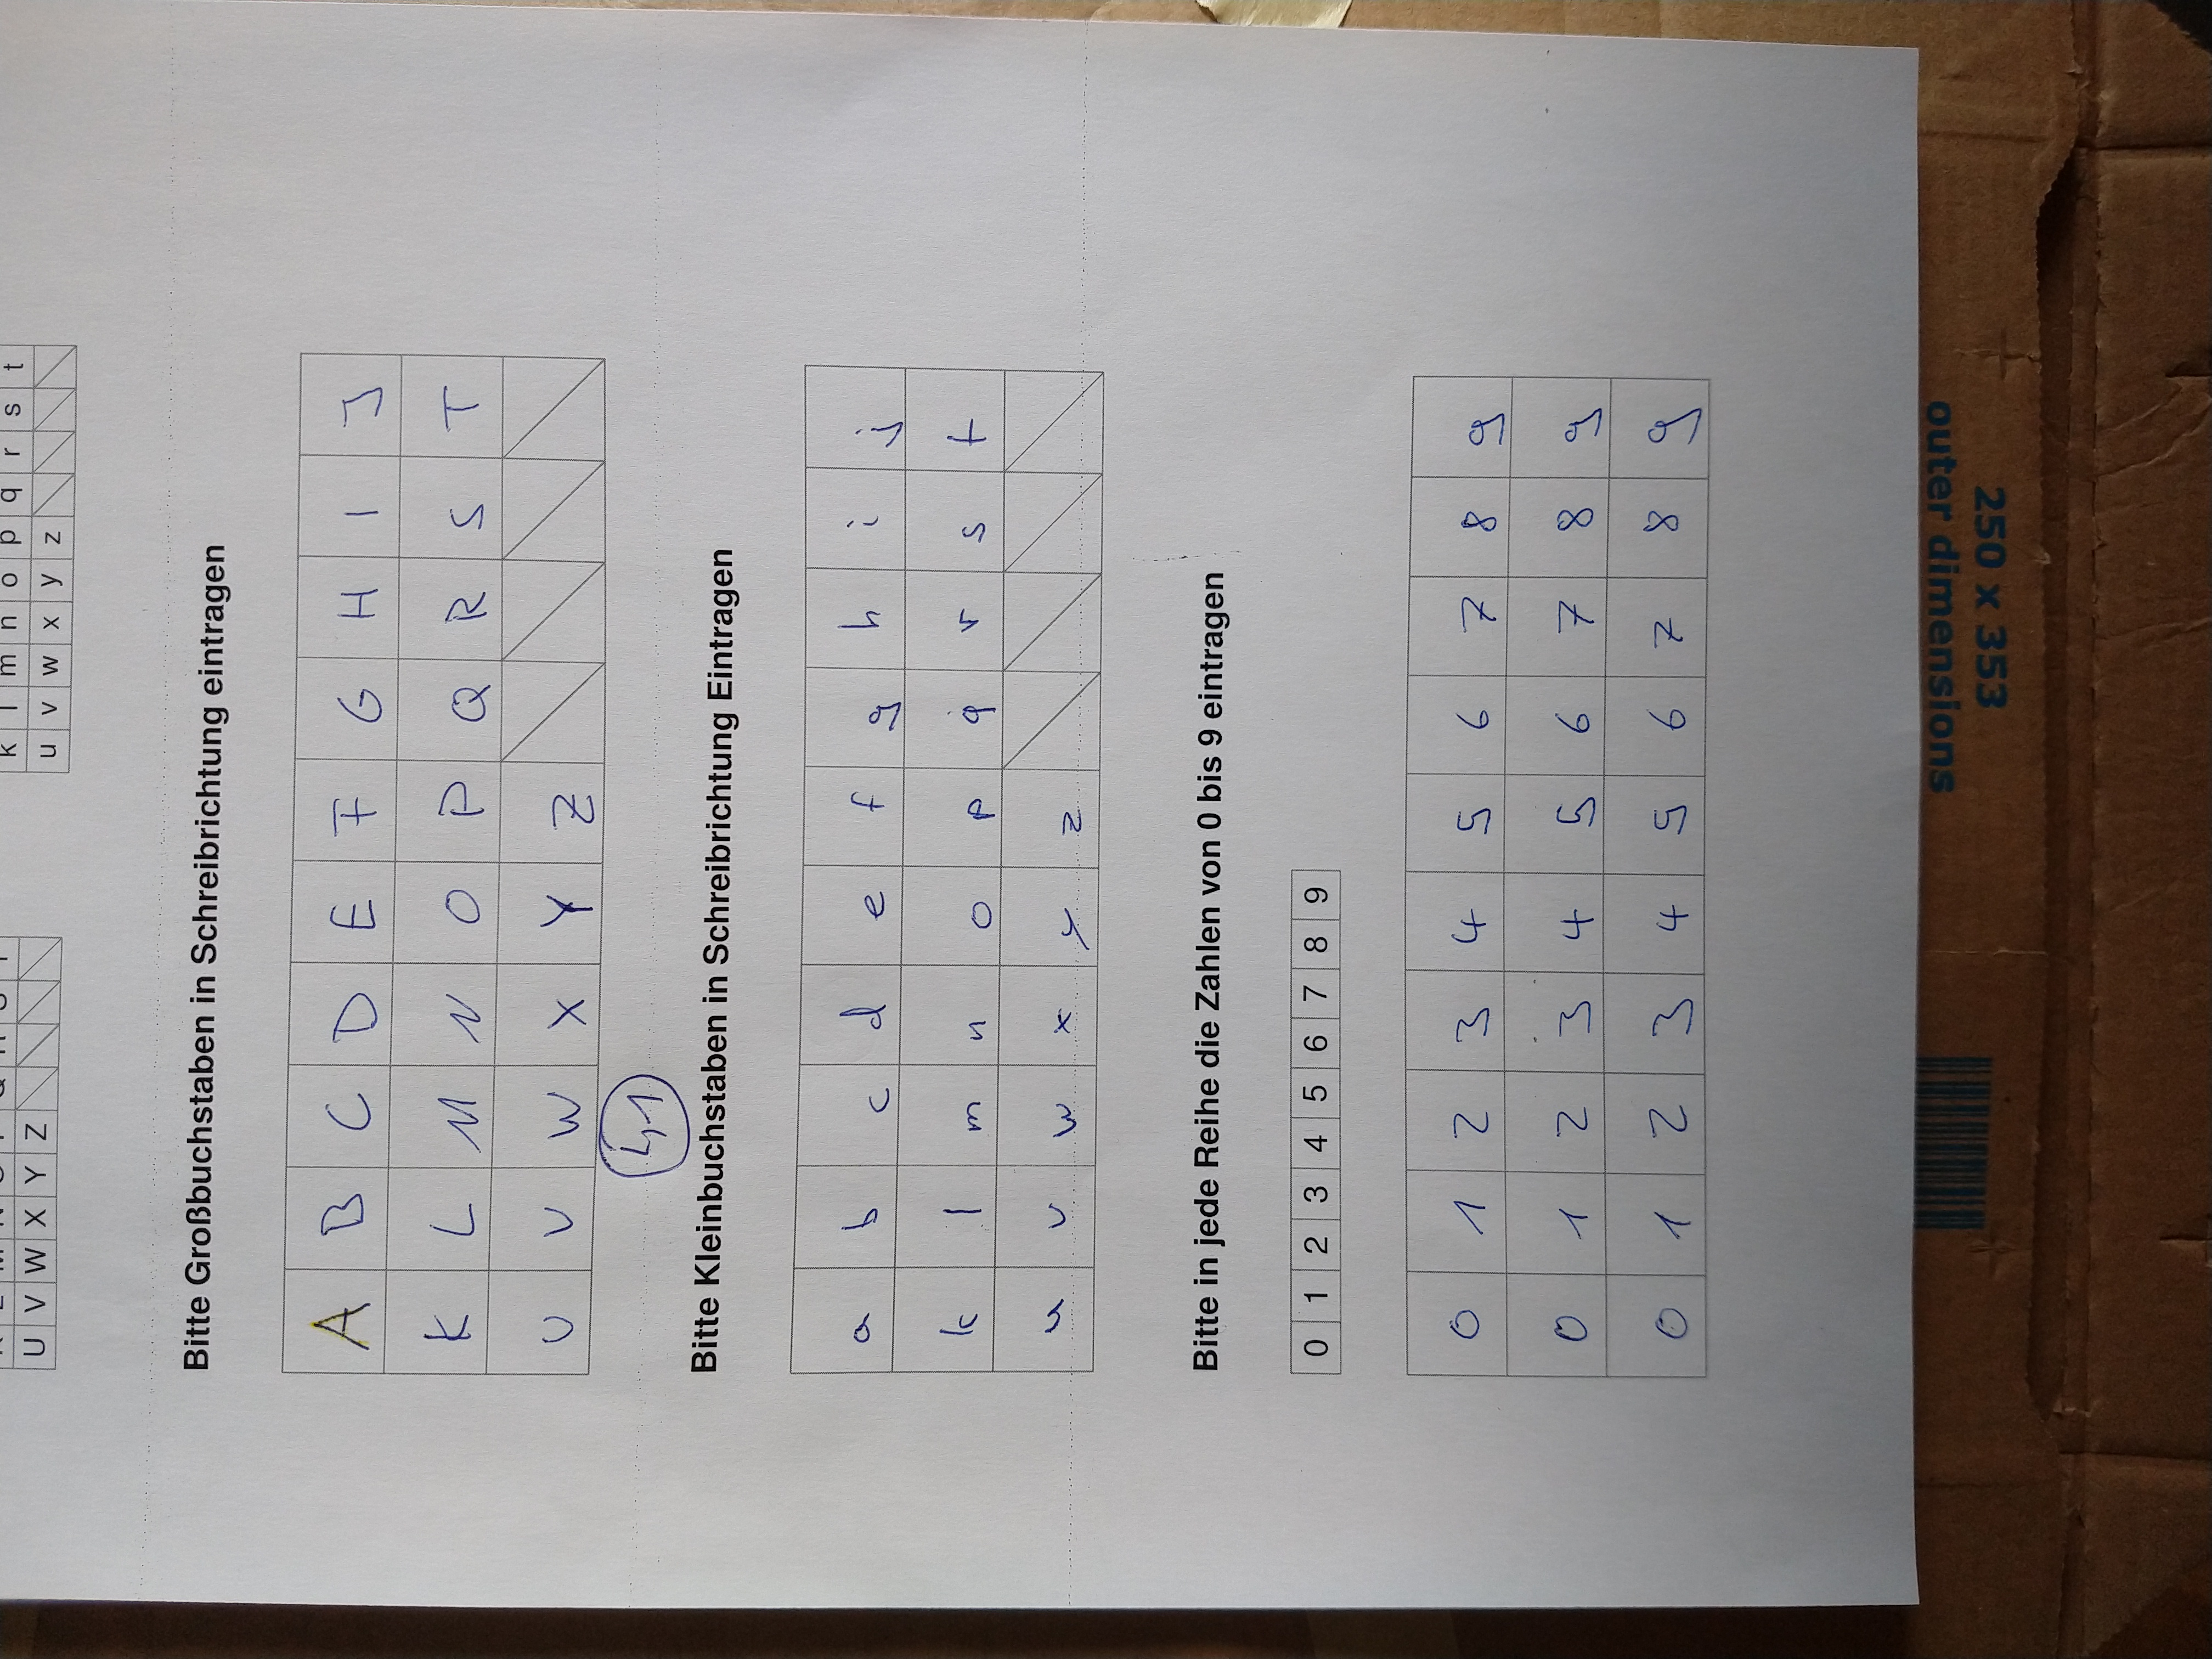 K L M N O P Q R S T
U V W X Y Z
k l m n o p q r s t
u v w x y z
Bitte Großbuchstaben in Schreibrichtung eintragen
A B C D E F G H I J
K L M N O P Q R S T
U V W X Y Z
41
Bitte Kleinbuchstaben in Schreibrichtung Eintragen
a b c d e f g h i j
k l m n o p q r s t
u v w x y z
Bitte in jede Reihe die Zahlen von 0 bis 9 eintragen
0 1 2 3 4 5 6 7 8 9
0 1 2 3 4 5 6 7 8 9
0 1 2 3 4 5 6 7 8 9
0 1 2 3 4 5 6 7 8 9
250 x 353
outer dimensions